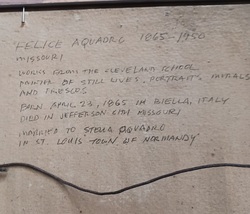 "FELICE AQUADRO 1865-1950
MISSOURI
WORKS FROM THE CLEVELAND SCHOOL
PAINTER OF STILL LIVES, PORTRAITS, MURALS
AND FRESCOS
BORN APRIL 23, 1865 IN BIELLA, ITALY
DIED IN JEFFERSON CITY MISSOURI
MARRIED TO STELLA AQUADRO
IN ST. LOUIS TOWN OF NORMANDY"